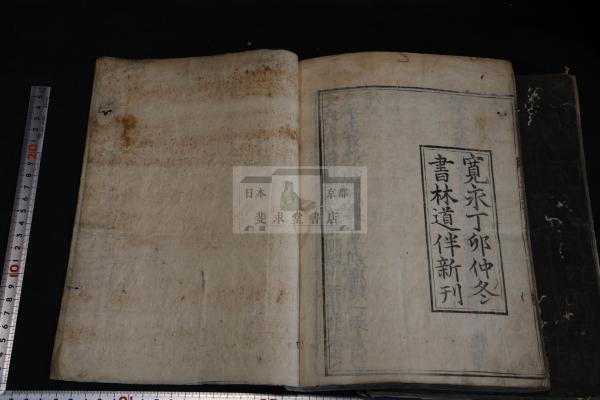 寛永丁卯仲冬
書林道伴新刊
日本 京都
斐求堂書店
10
20